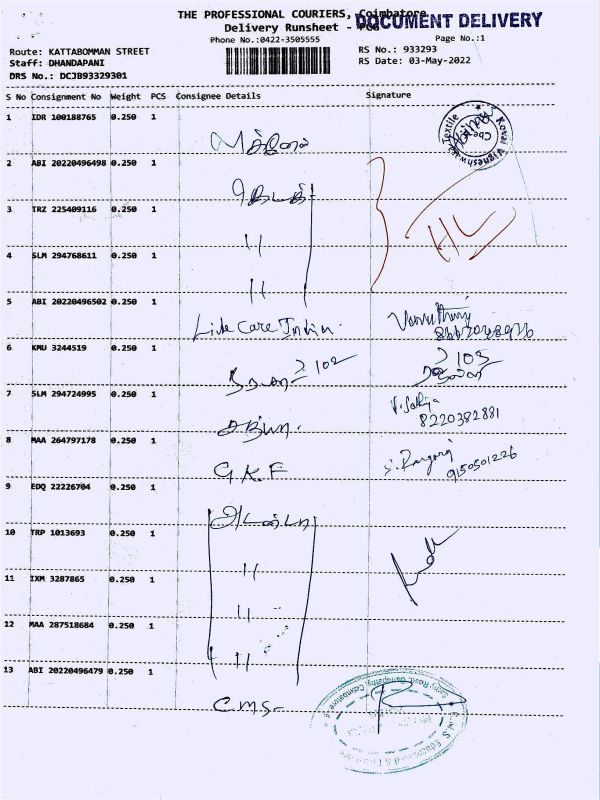 THE PROFESSIONAL COURIERS, Coimbatore
DOCUMENT DELIVERY
Delivery Runsheet -
Phone No.:0422-3505555
Page No.:1
Route: KATTABOMMAN STREET
RS No.: 933293
Staff: DHANDAPANI
RS Date: 03-May-2022
DRS No.: DCJB93329301
S No Consignment No Weight PCS Consignee Details Signature
1 IDR 100188765 0.250 1
Kovai Vigneshwara Textile
Cbe
2 ABI 20220496498 0.250 1
3 TRZ 225409116 0.250 1
"
4 SLM 294768611 0.250 1
"
5 ABI 20220496502 0.250 1
6 KMU 3244519 0.250 1
2102
2103
7 SLM 294724995 0.250 1
8220382881
8 MAA 264797178 0.250 1
G.K.F
9150501226
9 EDQ 22226704 0.250 1
10 TRP 1013693 0.250 1
"
11 IXM 3287865 0.250 1
"
12 MAA 287518684 0.250 1
"
13 ABI 20220496479 0.250 1
C.M.S.